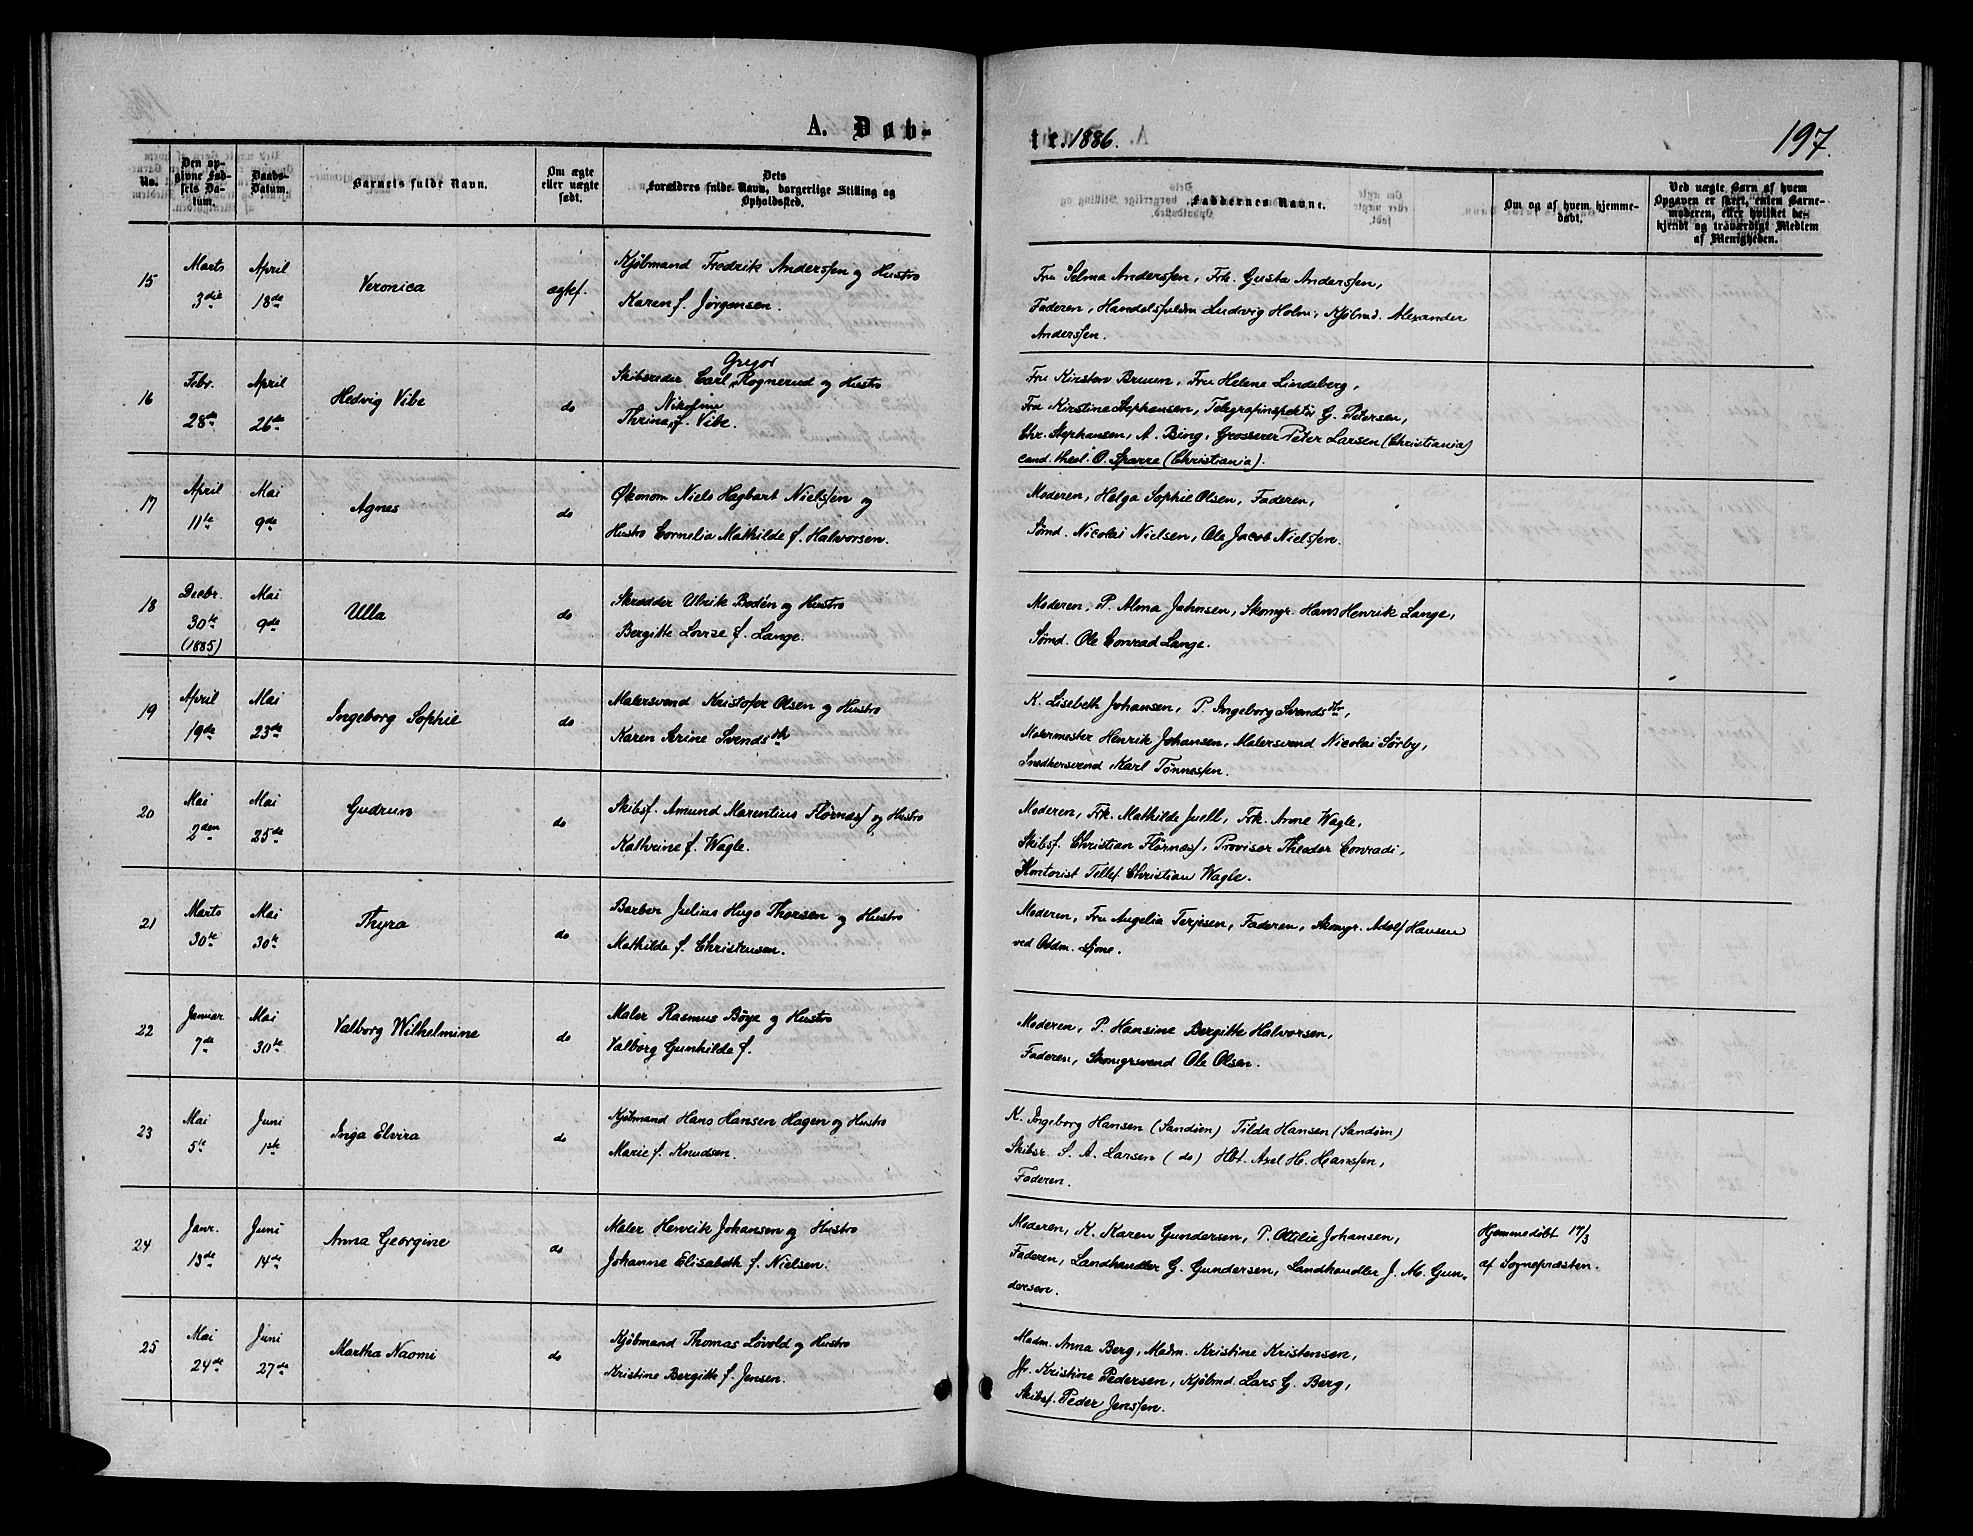 A. Døb-
te. 1886.
197.
No.
Den op-
givne Fød-
sels Da-
tum.
Daabs-
Datum.
Barnets fulde Navn.
Om ægte
eller uægte
født.
Dets
Forældres fulde Navn, borgerlige Stilling og
Opholdssted.
Faddernes Navne.
Om og af hvem hjemme-
døbt.
Ved uægte Børn af hvem
Opgaven er skeet, enten Barne-
moderen, eller hvilket be-
kjendt og troværdigt Medlem
af Menigheden.
15
Marts
3die
April
18de
Veronica
ægtef.
Kjøbmand Fredrik Anderssen og Hustro
Karen f. Jørgensen.
Fru Selma Anderssen, Frk. Gusta Anderssen,
Faderen, Handelsfuldm Ludvig Holm, Kjøbmd. Alexander
Anderssen.
16
Febr.
28de
April
26de
Hedvig Vibe
do
Gregor
Skibsreder Carl Rognerud og Hustro
Nikoline
Thrina f. Vibe.
Fru Kirsten Bruun, Fru Helene Lindeberg,
Fru Kirstine Stephansen, Telegrafinspektør G. Petersen,
Chr. Stephansen, A. Bing, Grosserer Peter Larsen (Christiania)
cand. theol. O. Sparre (Christiania).
17
April
11te
Mai
9de
Agnes
do
Økonom Niels Hagbart Nielssen og
Hustro Cornelia Mathilde f. Halvorsen.
Moderen, Helga Sophie Olsen, Faderen,
Sømd. Nicolai Nielsen, Ole Jacob Nielssen.
18
Decbr.
30te
(1885)
Mai
9de
Ulla
do
Skrædder Ulrik Bodén og Hustro
Bergitte Lovise f. Lange.
Moderen, P. Alma Jahnsen, Skomgr. Hans Henrik Lange,
Sømd. Ole Conrad Lange.
19
April
19de
Mai
23de
Ingeborg Sophie
do
Malersvend Kristofer Olsen og Hustro
Karen Serine Svendsdtr
K. Lisebeth Johansen, P. Ingeborg Svendsdtr,
Malermester Henrik Johansen, Malersvend Nicolai Sørby,
Snedkersvend Karl Tønnessen.
20
Mai
2den
Mai
25de
Gudrun
do
Skibsf. Amund Marentius Flørnæss og Hustro
Kathrine f. Wagle.
Moderen, Frk. Mathilde Juell, Frk. Anne Wagle,
Skibsf. Christian Flørnæss, Provisor Theodor Conradi,
Kontorist Tellef Christian Wagle.
21
Marts
30te
Mai
30te
Thyra
do
Barber Julius Hugo Thorsen og Hustro
Mathilde f. Christensen.
Moderen, Fru Angelia Terjesen, Faderen, Skomgr. Adolf Hansen
ved Oddm. Sjone.
22
Januar
7de
Mai
30te
Valborg Wilhelmine
do
Maler Rasmus Böye og Hustro
Valborg Gunhilde f.
Moderen, P. Hansine Bergitte Halvorsen,
Faderen, Skomgrsvend Ole Olsen.
23
Mai
5te
Juni
1ste
Inga Elvira
do
Kjøbmand Hans Hansen Hagen og Hustro
Marie f. Knudsen.
K. Ingeborg Hansen (Sandøen) Tilda Hansen (Sandøen)
Skibsr. S. A. Larsen (do) Hbt. Axel H. Hanssen,
Faderen.
24
Janr.
13de
Juni
14de
Anna Georgine
do
Maler Henrik Johansen og Hustro
Johanne Elisabeth f. Nielsen.
Moderen, K. Karen Gundersen, P. Ottilie Johansen,
Faderen, Landhandler G. Gundersen, Landhandler J. M. Gun-
dersen.
Hjemmedøbt 17/3
af Sognepræsten.
25
Mai
24de
Juni
27de
Martha Naomi
do
Kjøbmand Thomas Løvold og Hustro
Kristine Bergitte f. Jensen.
Madm. Anna Berg, Madm. Kristine Kristensen,
Jfr. Kristine Pedersen, Kjøbmd. Lars G. Berg,
Skibsf. Peder Jenssen.